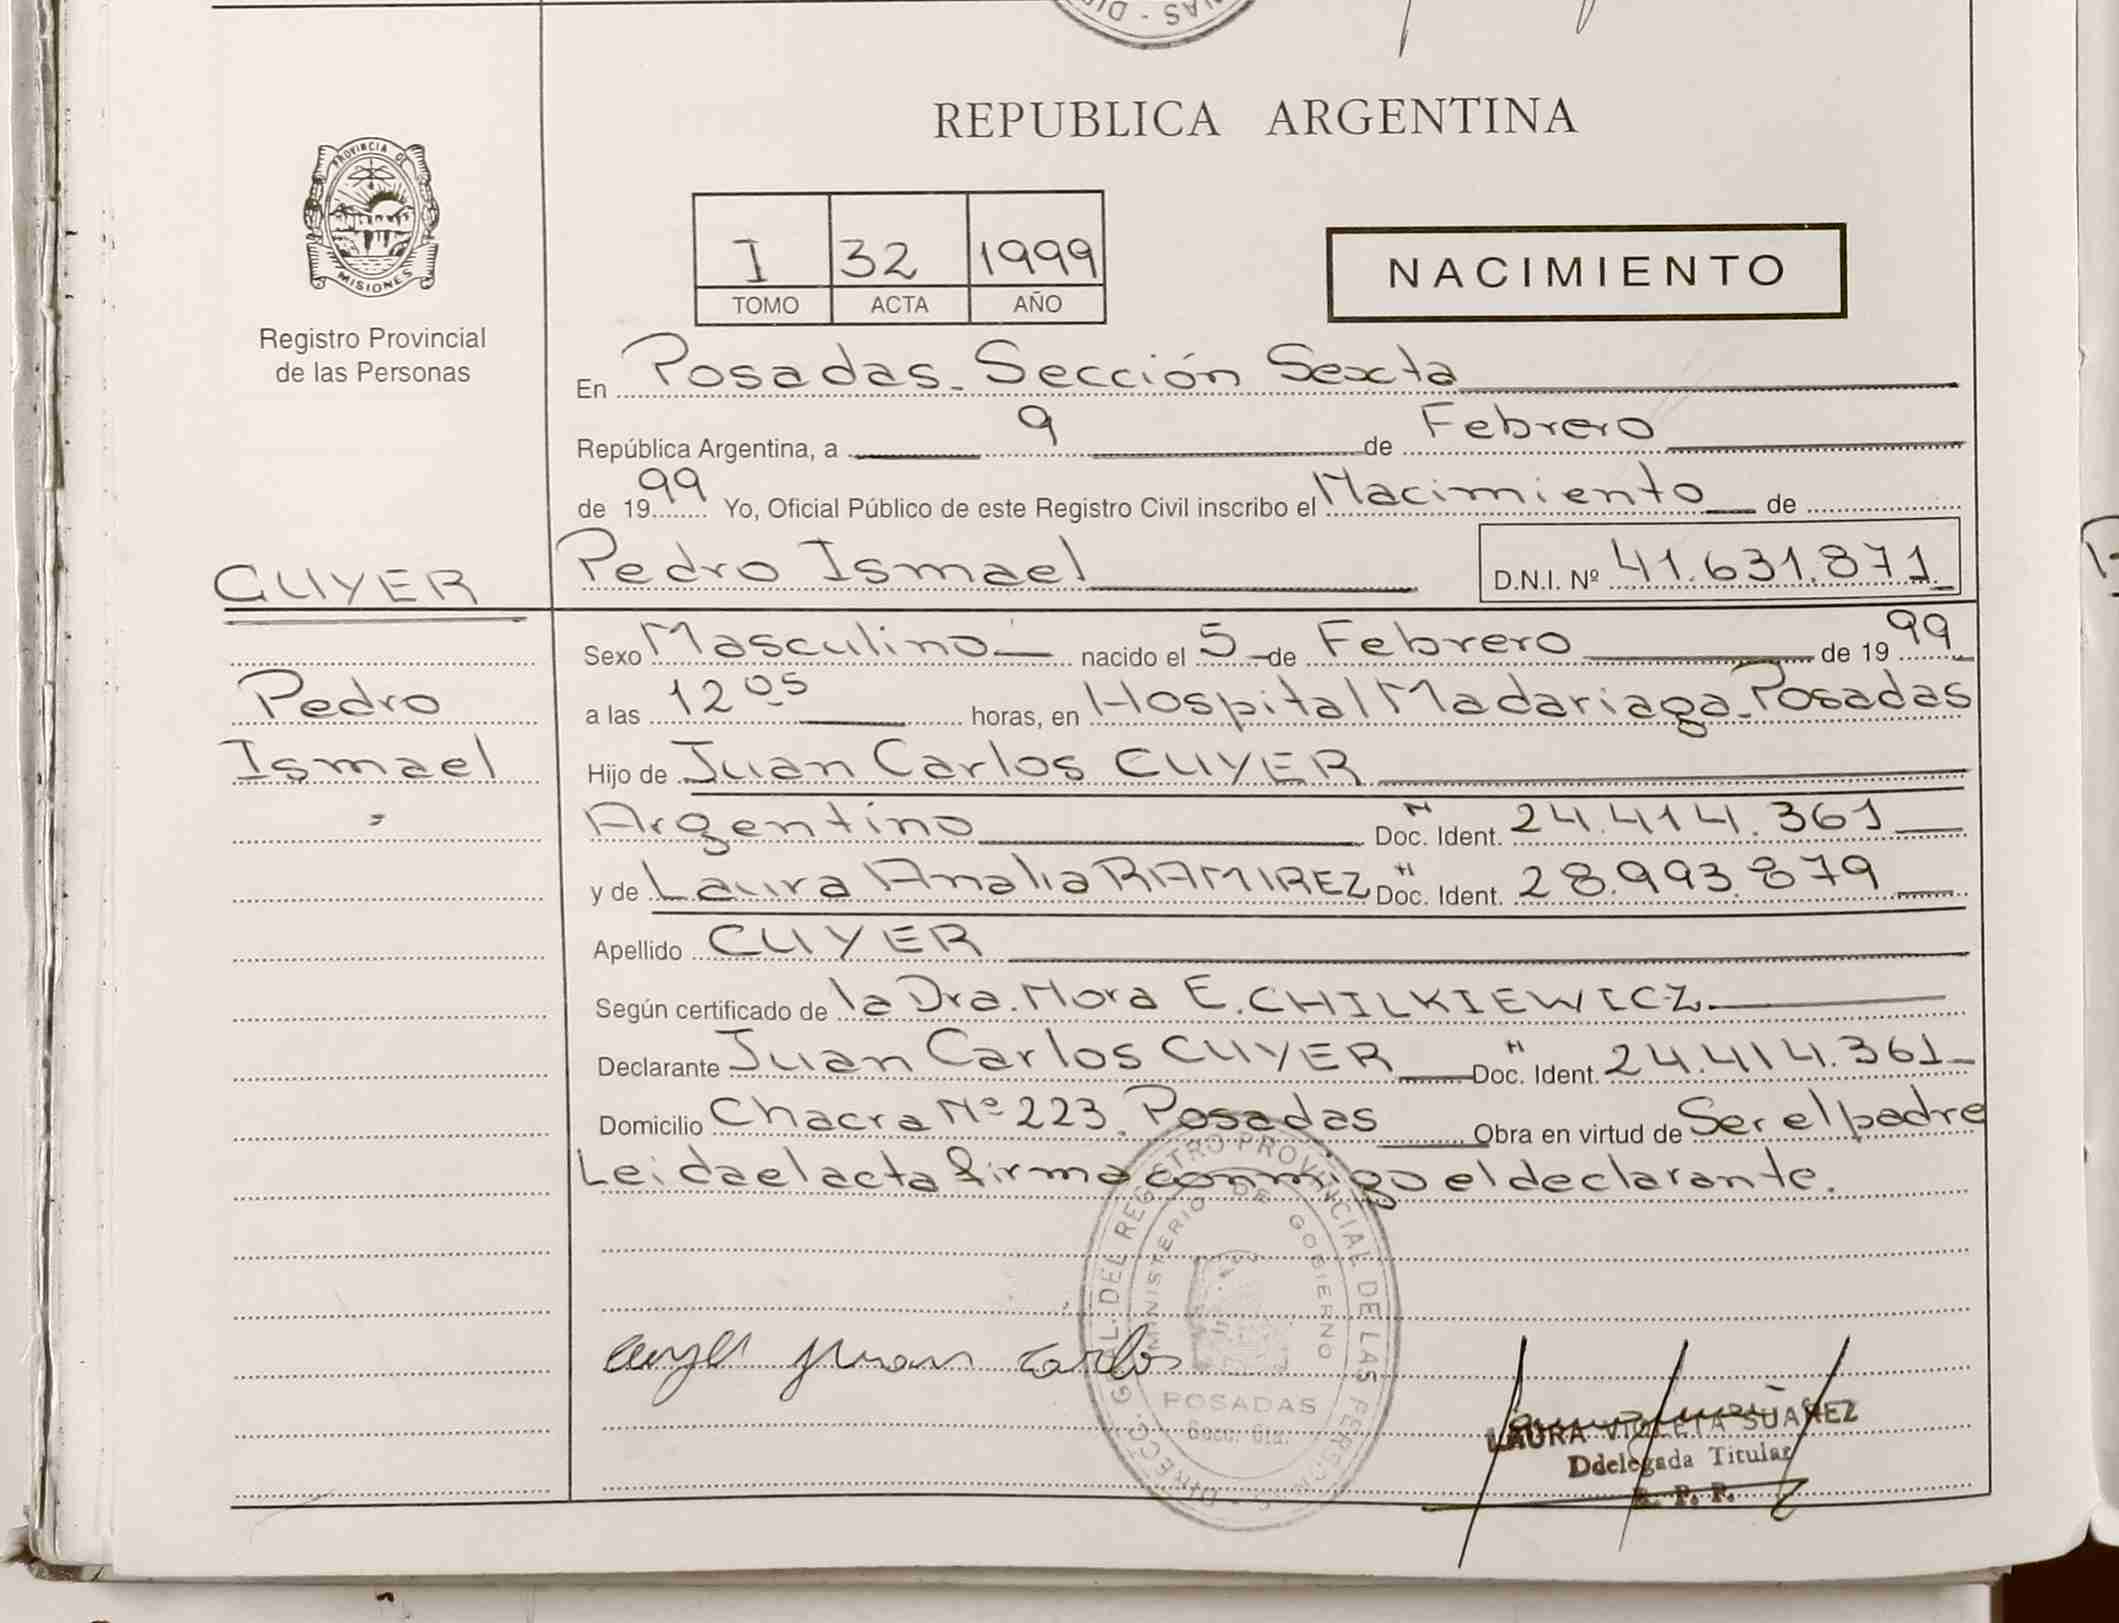 REPUBLICA ARGENTINA
PROVINCIA DE
MISIONES
Registro Provincial
de las Personas
I 32 1999
TOMO ACTA AÑO
NACIMIENTO
En Posadas - Sección Sexta
República Argentina, a 9 de Febrero
de 1999 Yo, Oficial Público de este Registro Civil inscribo el Nacimiento de
CUYER Pedro Ismael D.N.I. Nº 41.631.871
Sexo Masculino nacido el 5 de Febrero de 1999
Pedro
a las 12 05 horas, en Hospital Madariaga - Posadas
Ismael
Hijo de Juan Carlos CUYER
Argentino Doc. Ident. 24.414.361
y de Laura Analia RAMIREZ Doc. Ident. 28.993.879
Apellido CUYER
Según certificado de la Dra. Nora E. CHILKIEWICZ
Declarante Juan Carlos CUYER Doc. Ident. 24.414.361
Domicilio Chacra Nº 223. Posadas Obra en virtud de Ser el padre
Leida el acta firma conmigo el declarante.
DIRECC. GRAL. DEL REGISTRO PROVINCIAL DE LAS PERSONAS
MINISTERIO DE GOBIERNO
POSADAS
Secc. 6ta.
Cuyer Juan Carlos
LAURA VIOLETA SUAREZ
Ddelegada Titular
R. P. P.